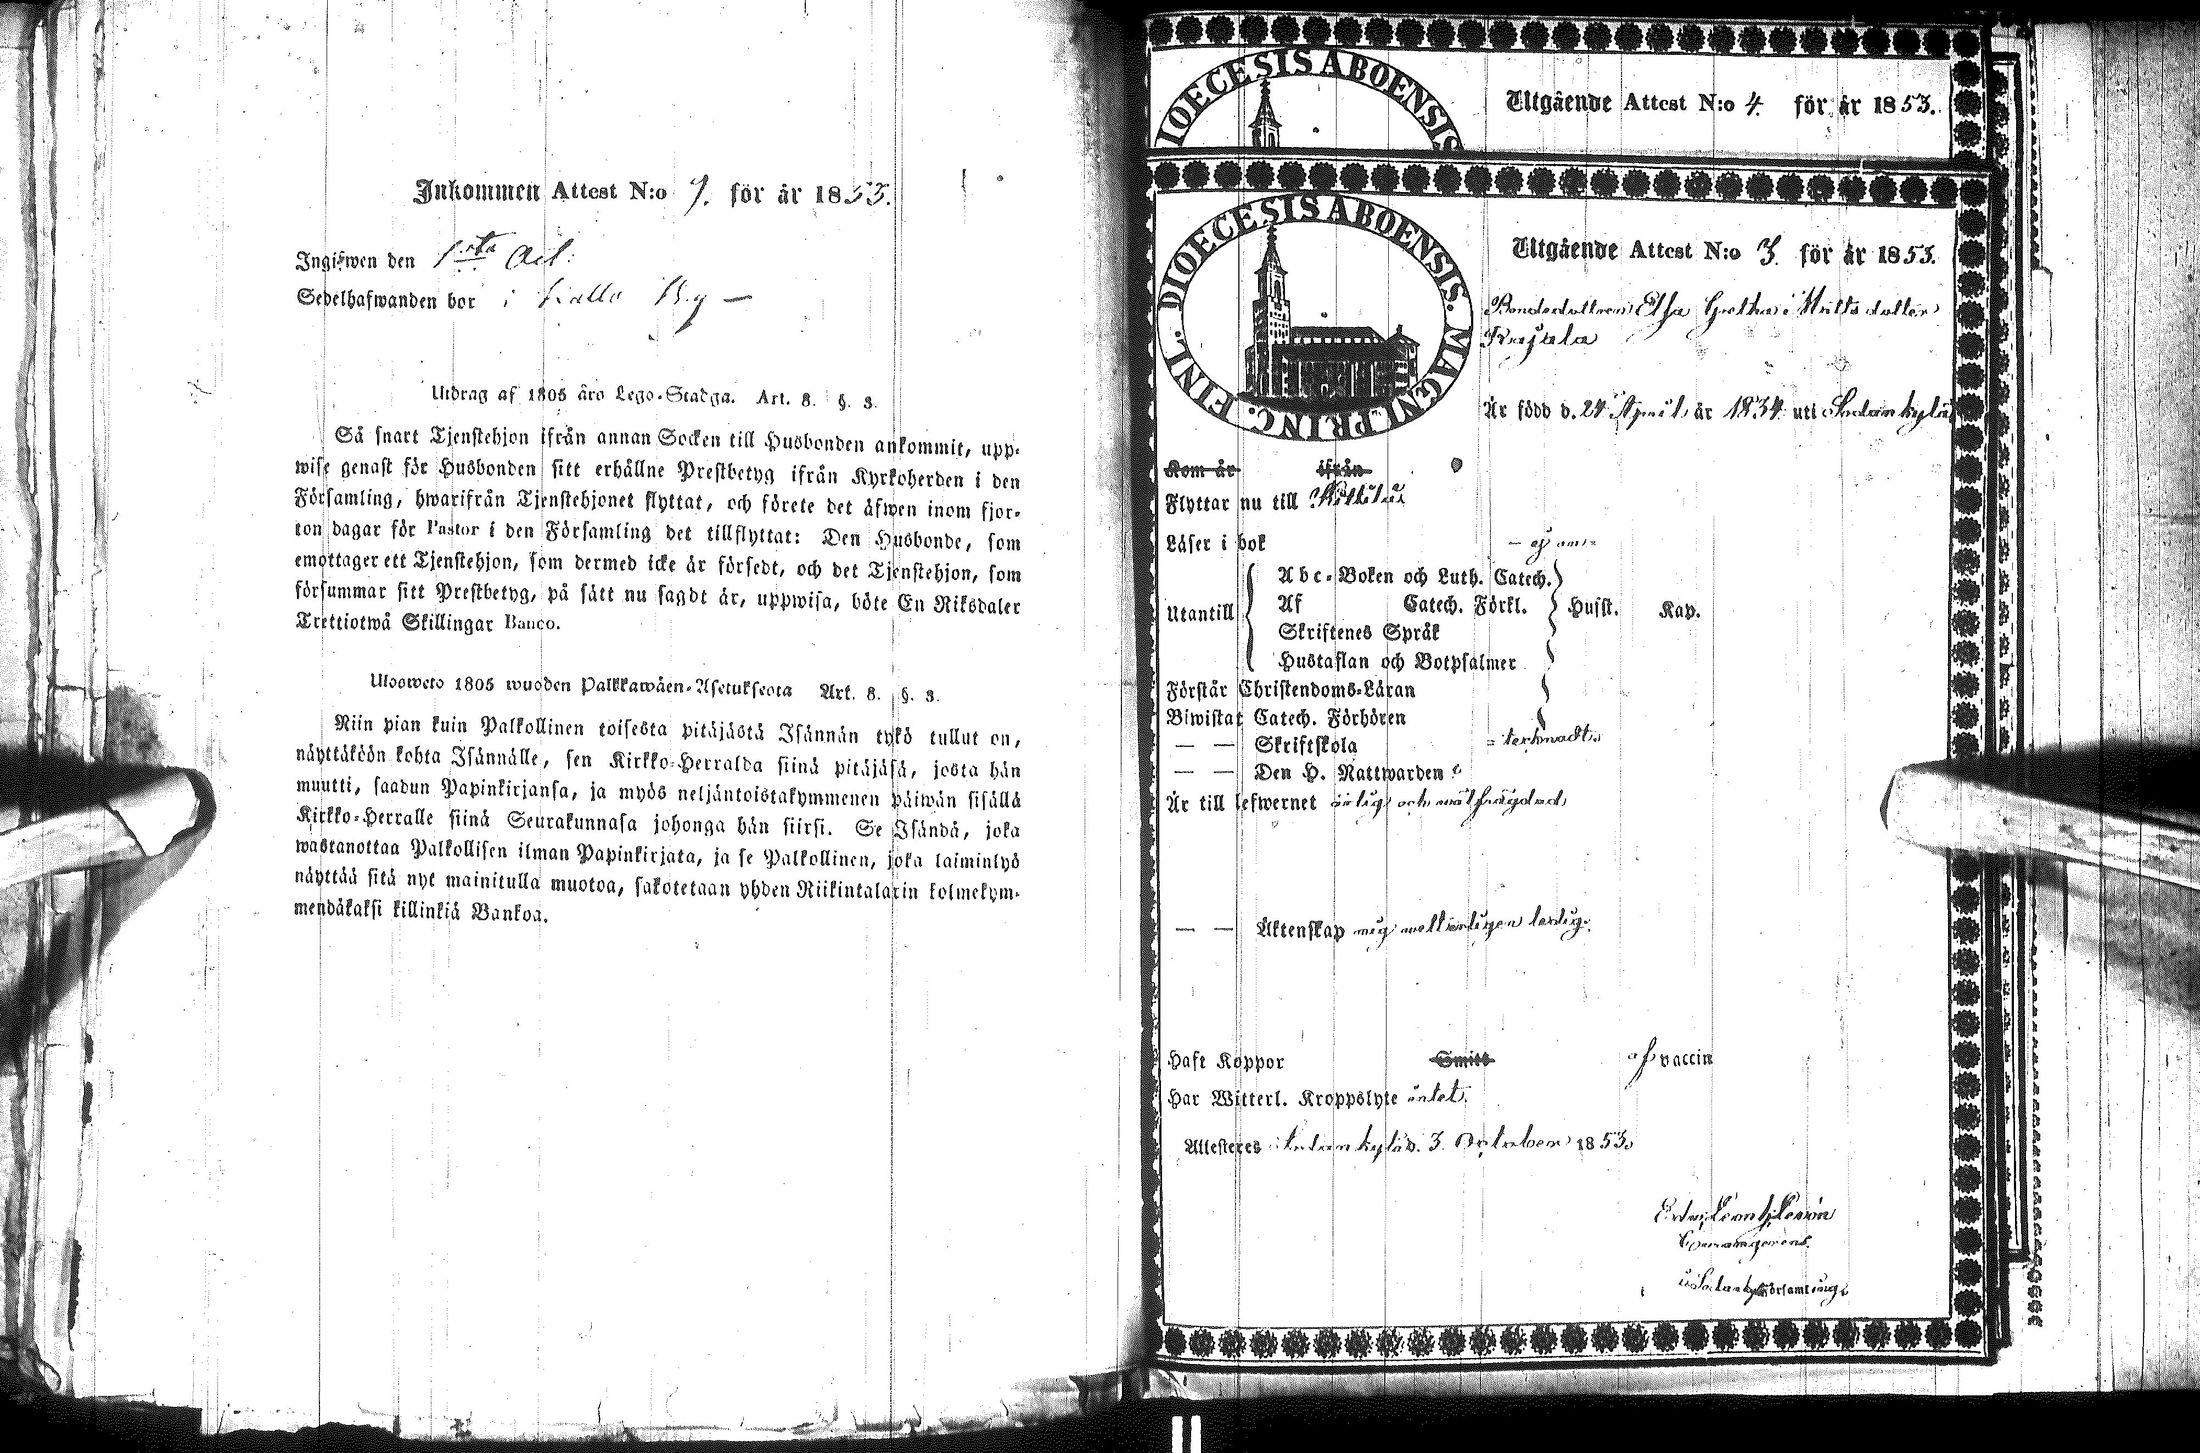 Inkommen Attest N:o 7. för år 1853.
Ingifwen den 1sta Oct.
Sedelhafwanden bor i Kallo By —
Utdrag af 1805 års Lego-Stadga. Art. 8. §. 3.
Så snart Tjenstehjon ifrån annan Socken till Husbonden ankommit, upp-
wise genast för Husbonden sitt erhållne Prestbetyg ifrån Kyrkoherden i den
Församling, hwarifrån Tjenstehjonet flyttat, och förete det äfwen inom fjor-
ton dagar för Pastor i den Församling det tillflyttat: Den Husbonde, som
emottager ett Tjenstehjon, som dermed icke är försedt, och det Tjenstehjon, som
försummar sitt Prestbetyg, på sätt nu sagdt är, uppwisa, böte En Riksdaler
Trettiotwå Skillingar Banco.
Ulosweto 1805 wuoden Palkkawäen-Asetuksesta Art. 8. §. 3.
Niin pian kuin Palkollinen toisesta pitäjästä Isännän tykö tullut on,
näyttäköön kohta Isännälle, sen Kirkko-Herralda siinä pitäjäsä, josta hän
muutti, saadun Papinkirjansa, ja myös neljäntoistakymmenen päiwän sisällä
Kirkko-Herralle siinä Seurakunnasa johonga hän siirsi. Se Isändä, joka
wastanottaa Palkollisen ilman Papinkirjata, ja se Palkollinen, joka laiminlyö
näyttää sitä nyt mainitulla muotoa, sakotetaan yhden Riikintalarin kolmekym-
mendäkaksi killinkiä Bankoa.
DIOECESIS ABOENSIS
Utgående Attest N:o 4. för år 1853.
DIOECESIS ABOENSIS. MAGNI PRINC. FINL.
Utgående Attest N:o 3. för år 1853.
Bondedottren Elsa Gretha Matts dotter
Kujala
Är född d. 24 April år 1834 uti Sodankylä
Kom år ifrån
Flyttar nu till Kittilä
Läser i bok
Utantill
Abc-Boken och Luth. Catech.
Af Catech. Förkl.
Skriftenes Språk
Hustaflan och Botpsalmer
Husst. Kap.
Förstår Christendoms-Läran
Biwistat Catech. Förhören
— — Skriftskola
— — Den H. Nattwarden
Är till lefwernet ärlig och wälfrägdad
— — Äktenskap mig wetterligen ledig.
Haft Koppor Smitt af vaccin
Har Witterl. Kroppslyte intet.
Attesteres Sodankylä d. 3 October 1853.
i Sodankylä Församling